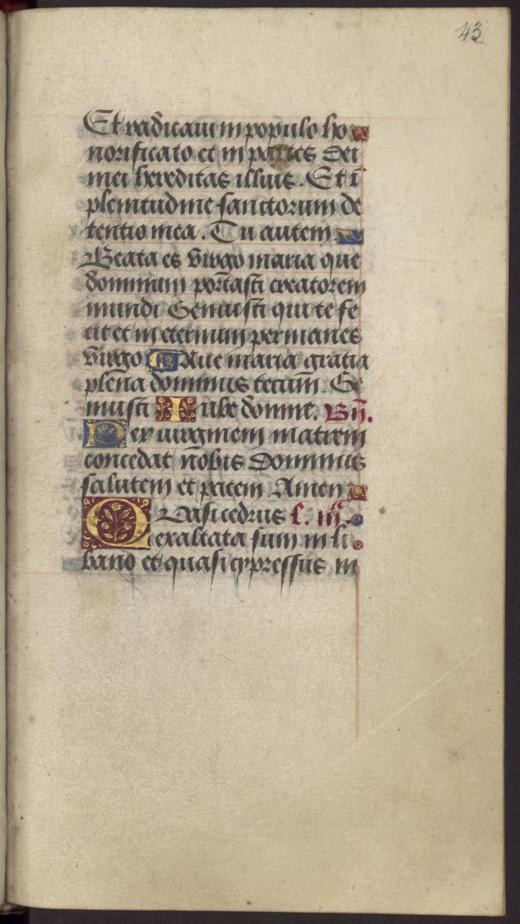 43
Et radicaui in populo ho
norificato et in partes dei
mei hereditas illius. Et ī
plenitudine sanctorum de
tentio mea. Tu autem.
Beata es virgo maria que
dominum portasti creatorem
mundi Genuisti qui te fe
cit et in eternum permanes
virgo Aue maria gratia
plena dominus tecum. Ge
nuisti Iube domne. Bn̄.
Per virginem matrem
concedat nobis dominus
salutem et pacem Amen
Quasi cedrus l. iii.
exaltata sum in li
bano et quasi cypressus in